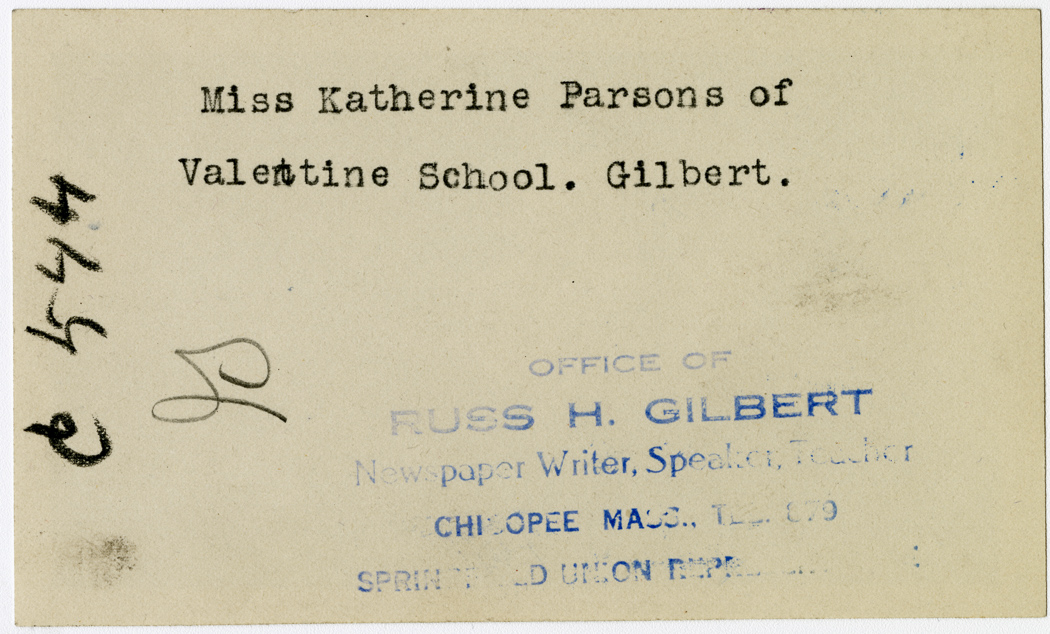 Miss Katherine Parsons of
Valentine School. Gilbert.
C 544
OFFICE OF
RUSS H. GILBERT
Newspaper Writer, Speaker, Teacher
CHICOPEE MASS., TEL. 879
SPRINGFIELD UNION